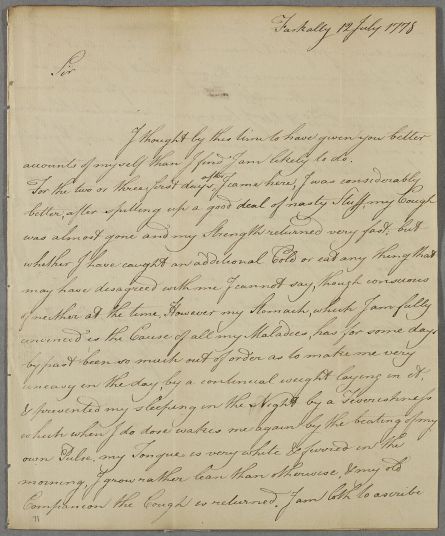 Faskally 12 July 1778
Sir
I thought by this time to have given you better
accounts of myself than I find I am likely to do.
For the two or three first days after I came here, I was considerably
better, after spitting up a good deal of nasty Stuff, my Cough
was almost gone and my Strength returned very fast, but
whether I have caught an additional Cold or eat any thing that
may have disagreed with me I cannot say, though conscious
of neither at the time, However my Stomach, which I am fully
convinced is the Cause of all my Maladies, has for some days
by past been so much out of order as to make me very
uneasy in the day by a continual weight laying in it,
& prevented my sleeping in the Night by a Feverishness
which when I do dose wakes me again by the beating of my
own Pulse. my Tongue is very white & furred in the
morning, I grow rather lean than otherwise, & my old
Companion the Cough is returned. I am loth to ascribe